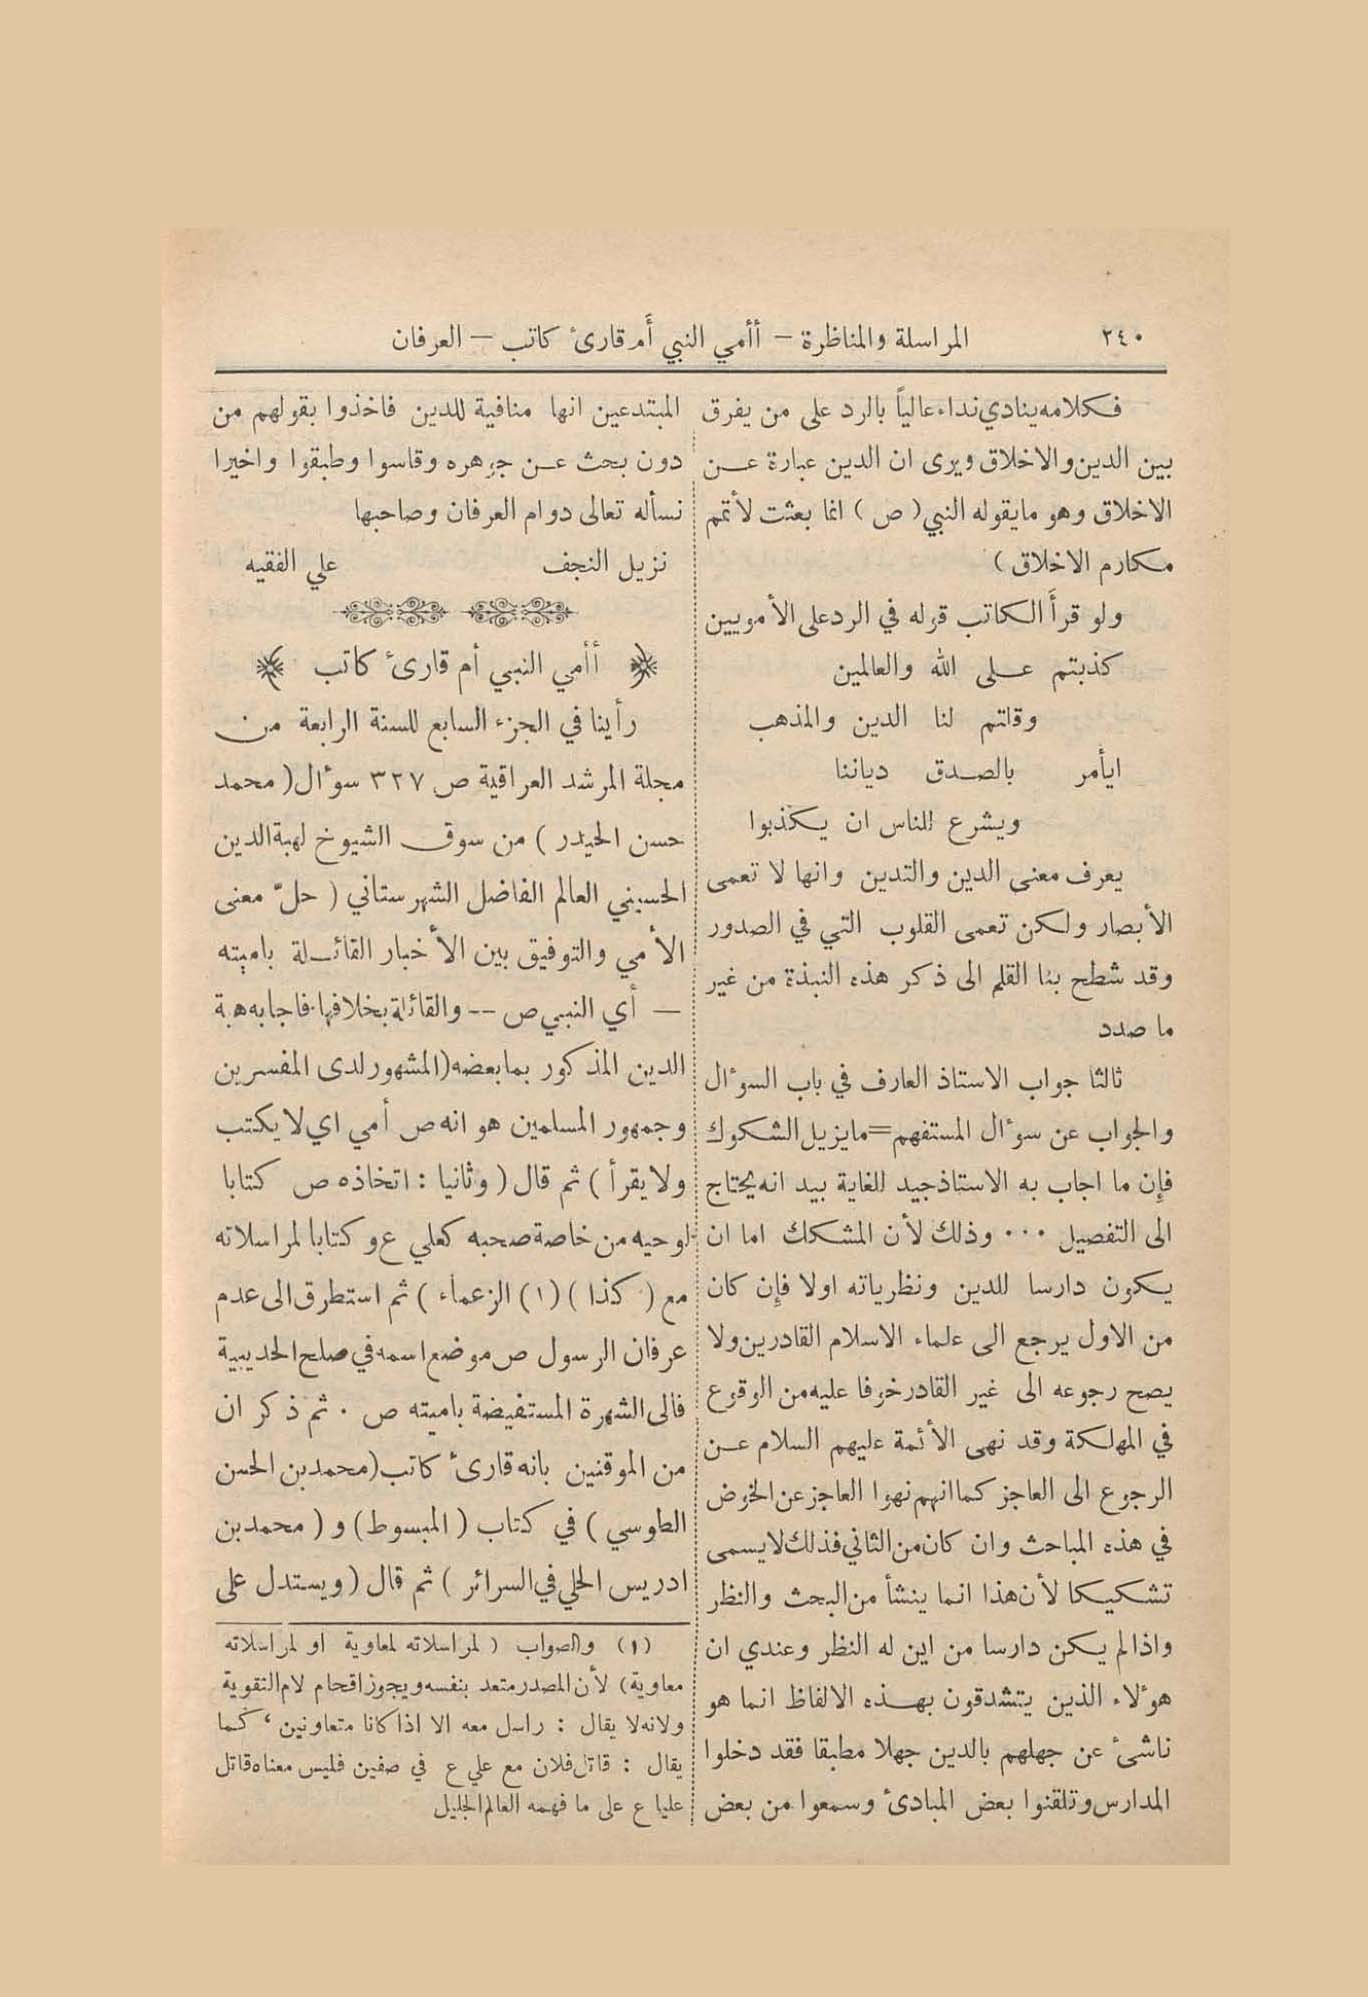 ٢٤٠ المراسلة والمناظرة – أأمي النبي أم قارئ كاتب – العرفان
فكلامه ينادي نداء عالياً بالرد على من يفرق
بين الدين والاخلاق ويرى ان الدين عبارة عن
الاخلاق وهو ما يقوله النبي ( ص ) انما بعثت لأتمم
مكارم الاخلاق )
ولو قرأ الكاتب قوله في الرد على الأمويين
كذبتم على الله والعالمين
وقلتم لنا الدين والمذهب
ايأمر بالصدق دياننا
ويشرع للناس ان يكذبوا
يعرف معنى الدين والتدين وانها لا تعمى
الأبصار ولكن تعمى القلوب التي في الصدور
وقد شطح بنا القلم الى ذكر هذه النبذة من غير
ما صدد
ثالثا جواب الاستاذ العارف في باب السوءال
والجواب عن سوءال المستفهم = ما يزيل الشكوك
فإن ما اجاب به الاستاذ جيد للغاية بيد انه يحتاج
الى التفصيل ٠٠٠ وذلك لأن المشكك اما ان
يكون دارسا للدين ونظرياته اولا فإن كان
من الاول يرجع الى علماء الاسلام القادرين ولا
يصح رجوعه الى غير القادر خوفا عليه من الوقوع
في المهلكة وقد نهى الأئمة عليهم السلام عن
الرجوع الى العاجز كما انهم نهوا العاجز عن الخوض
في هذه المباحث وان كان من الثاني فذلك لا يسمى
تشكيكا لأن هذا انما ينشأ من البحث والنظر
واذا لم يكن دارسا من اين له النظر وعندي ان
هوءلاء الذين يتشدقون بهذه الالفاظ انما هو
ناشئ عن جهلهم بالدين جهلا مطبقا فقد دخلوا
المدارس وتلقنوا بعض المبادئ وسمعوا من بعض
المبتدعين انها منافية للدين فاخذوا بقولهم من
دون بحث عن جوهره وقاسوا وطبقوا واخيرا
نسأله تعالى دوام العرفان وصاحبها
نزيل النجف علي الفقيه
أأمي النبي أم قارئ كاتب
رأينا في الجزء السابع للسنة الرابعة من
مجلة المرشد العراقية ص ٣٢٧ سوءال ( محمد
حسن الحيدر ) من سوق الشيوخ لهبة الدين
الحسيني العالم الفاضل الشهرستاني ( حلّ معنى
الأمي والتوفيق بين الأخبار القائلة باميته
– أي النبي ص -- والقائلة بخلافها . فاجابه هبة
الدين المذكور بما بعضه ( المشهور لدى المفسرين
وجمهور المسلمين هو انه ص أمي اي لا يكتب
ولا يقرأ ) ثم قال ( وثانيا : اتخاذه ص كتابا
لوحيه من خاصة صحبه كعلي ع وكتابا لمراسلاته
مع ( كذا ) (١) الزعماء ) ثم استطرق الى عدم
عرفان الرسول ص موضع اسمه في صلح الحديبية
فالى الشهرة المستفيضة باميته ص . ثم ذكر ان
من الموقنين بانه قارئ كاتب ( محمد بن الحسن
الطوسي ) في كتاب ( المبسوط ) و ( محمد بن
ادريس الحلي في السرائر ) ثم قال ( ويستدل على
(١) والصواب ( لمراسلاته لمعاوية او لمراسلاته
معاوية) لأن المصدر متعد بنفسه ويجوز اقحام لام التقوية
ولانه لا يقال : راسل معه الا اذا كانا متعاونين ، كما
يقال : قاتل فلان مع علي ع في صفين فليس معناه قاتل
عليا ع على ما فهمه العالم الجليل